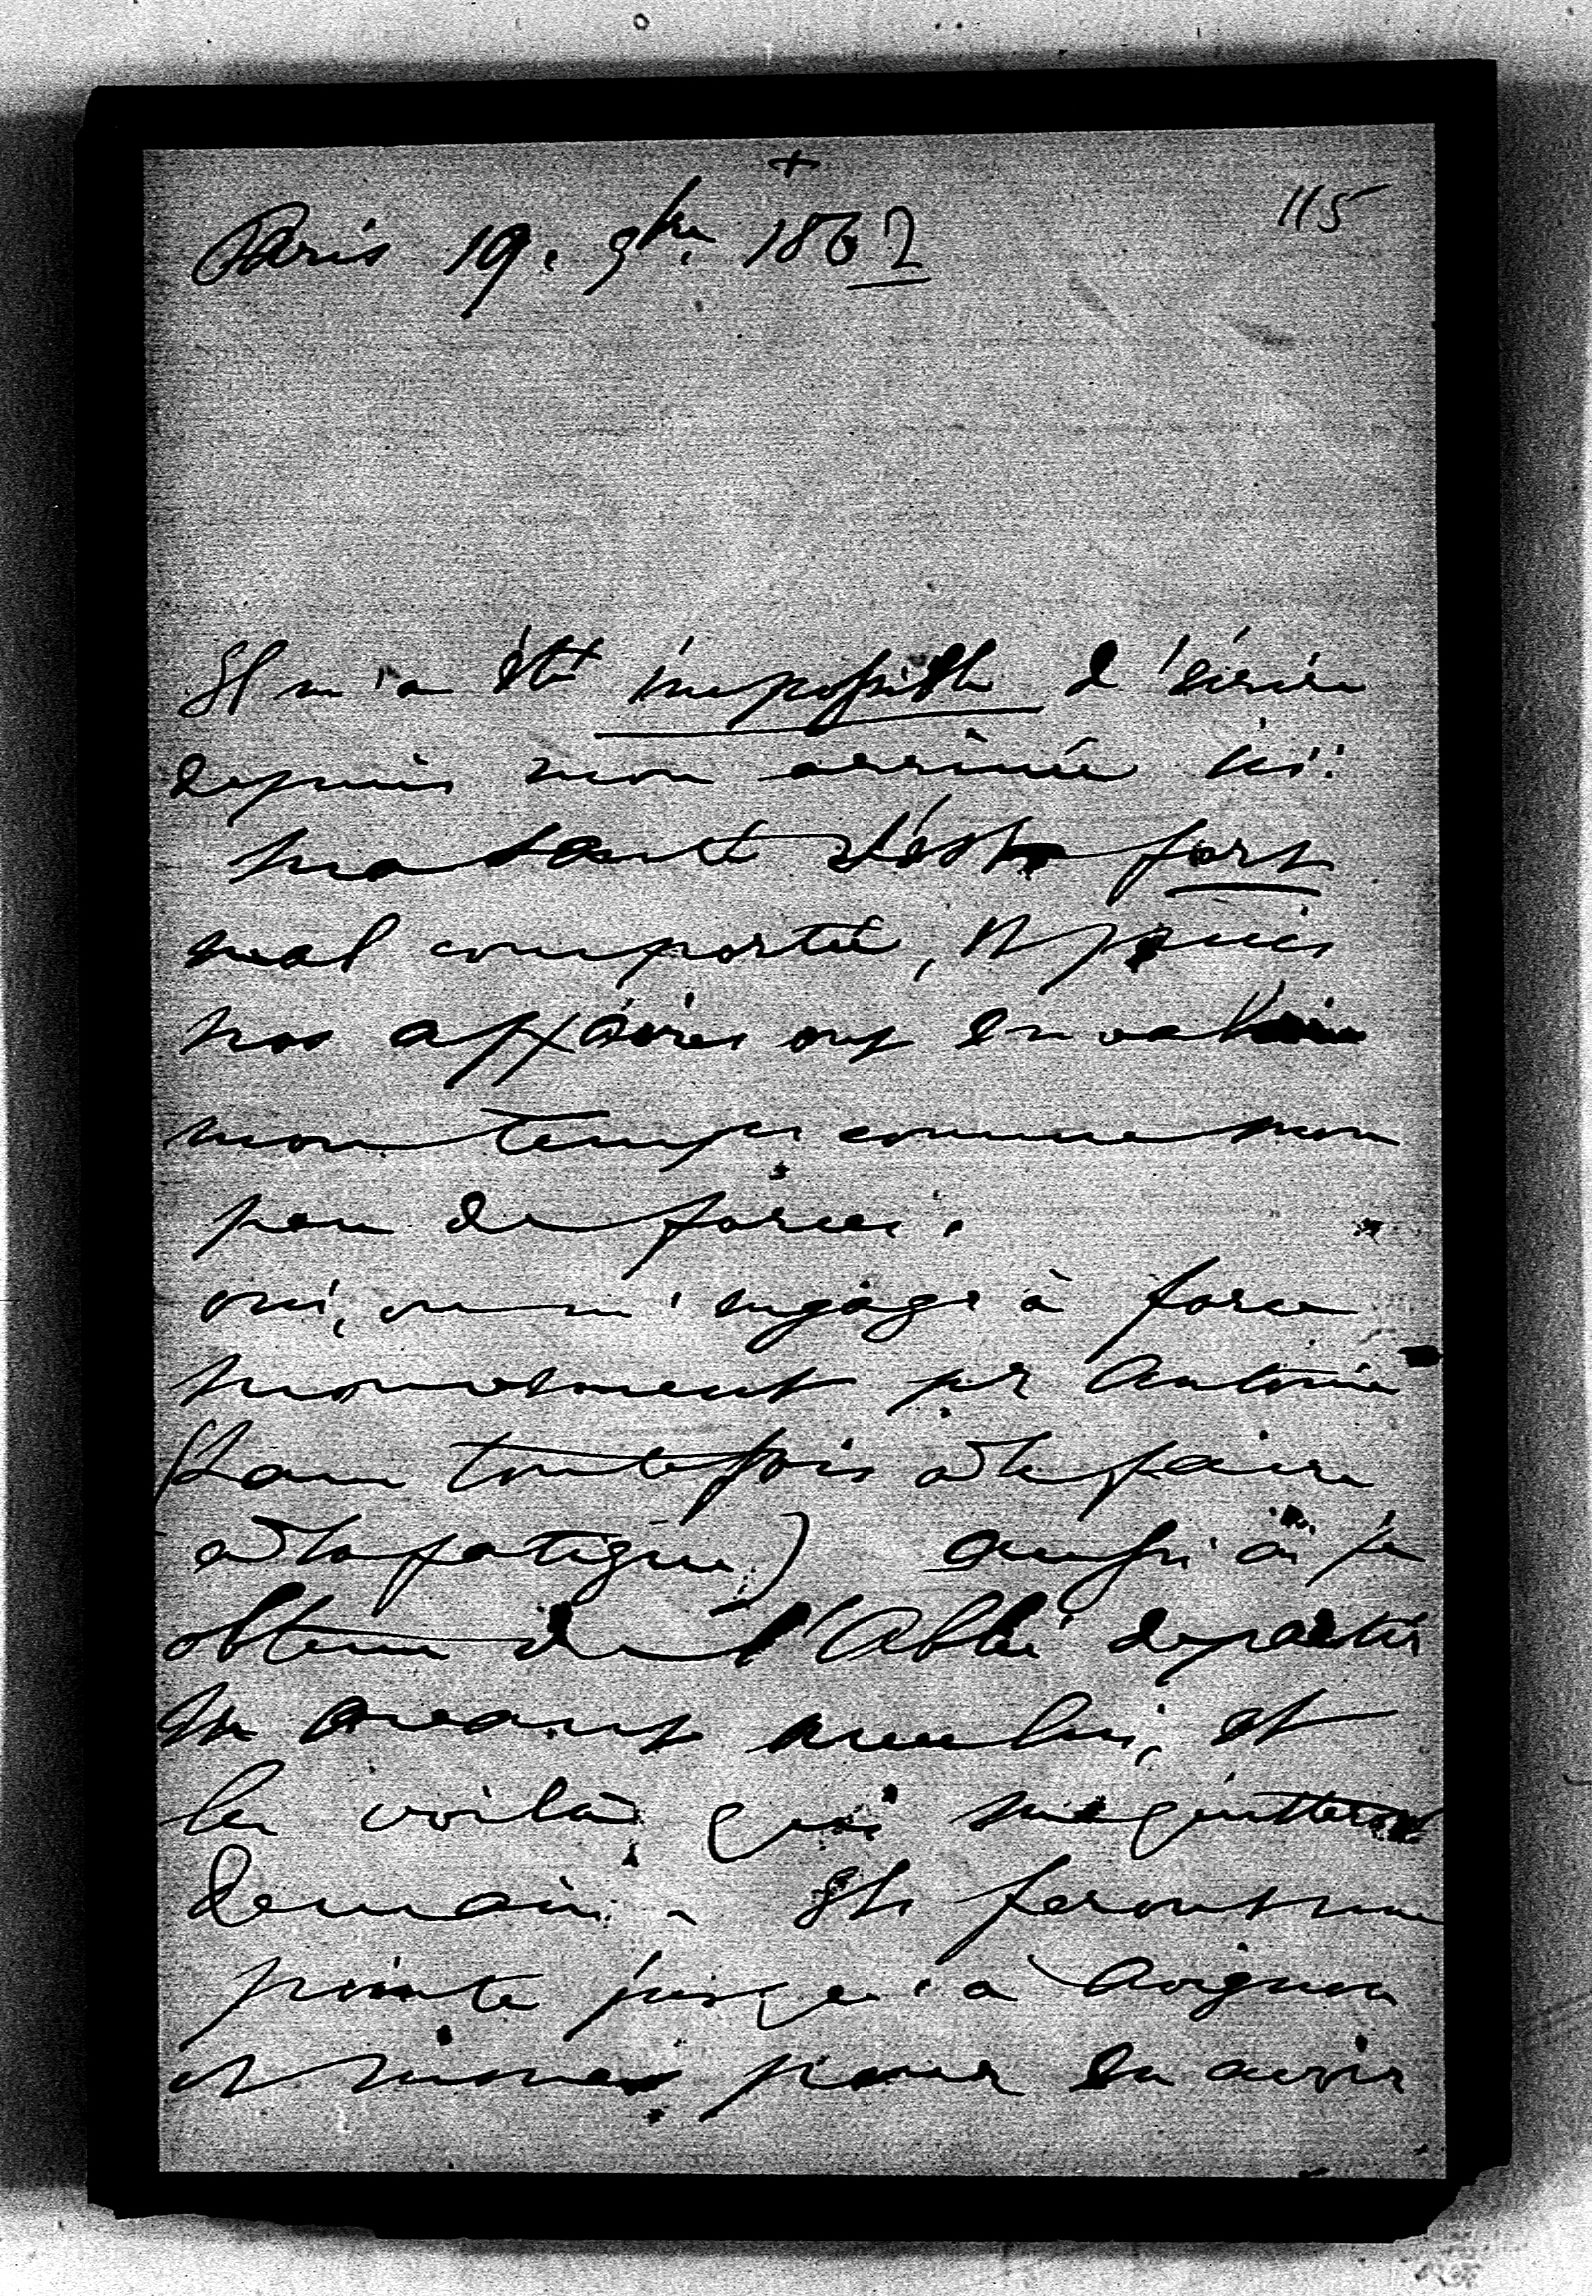 +
115
Paris 19. 9bre. 1862
Il m'a été impossible d'écrire
depuis mon arrivée ici:
ma santé s'est fort
mal comportée, et puis
nos affaires ont envahi
mon temps comme mon
peu de forces.
oui, on m'engage à force
mouvement pr Antoine
(sans toutefois de la faire
de la fatigue) aussi ai je
obtenu de l'Abbé departir
en avant avec lui, et
les voilà qui me quittent
demain. Ils feront une
pointe jusqu'à Avignon
et nimes pour en avoir